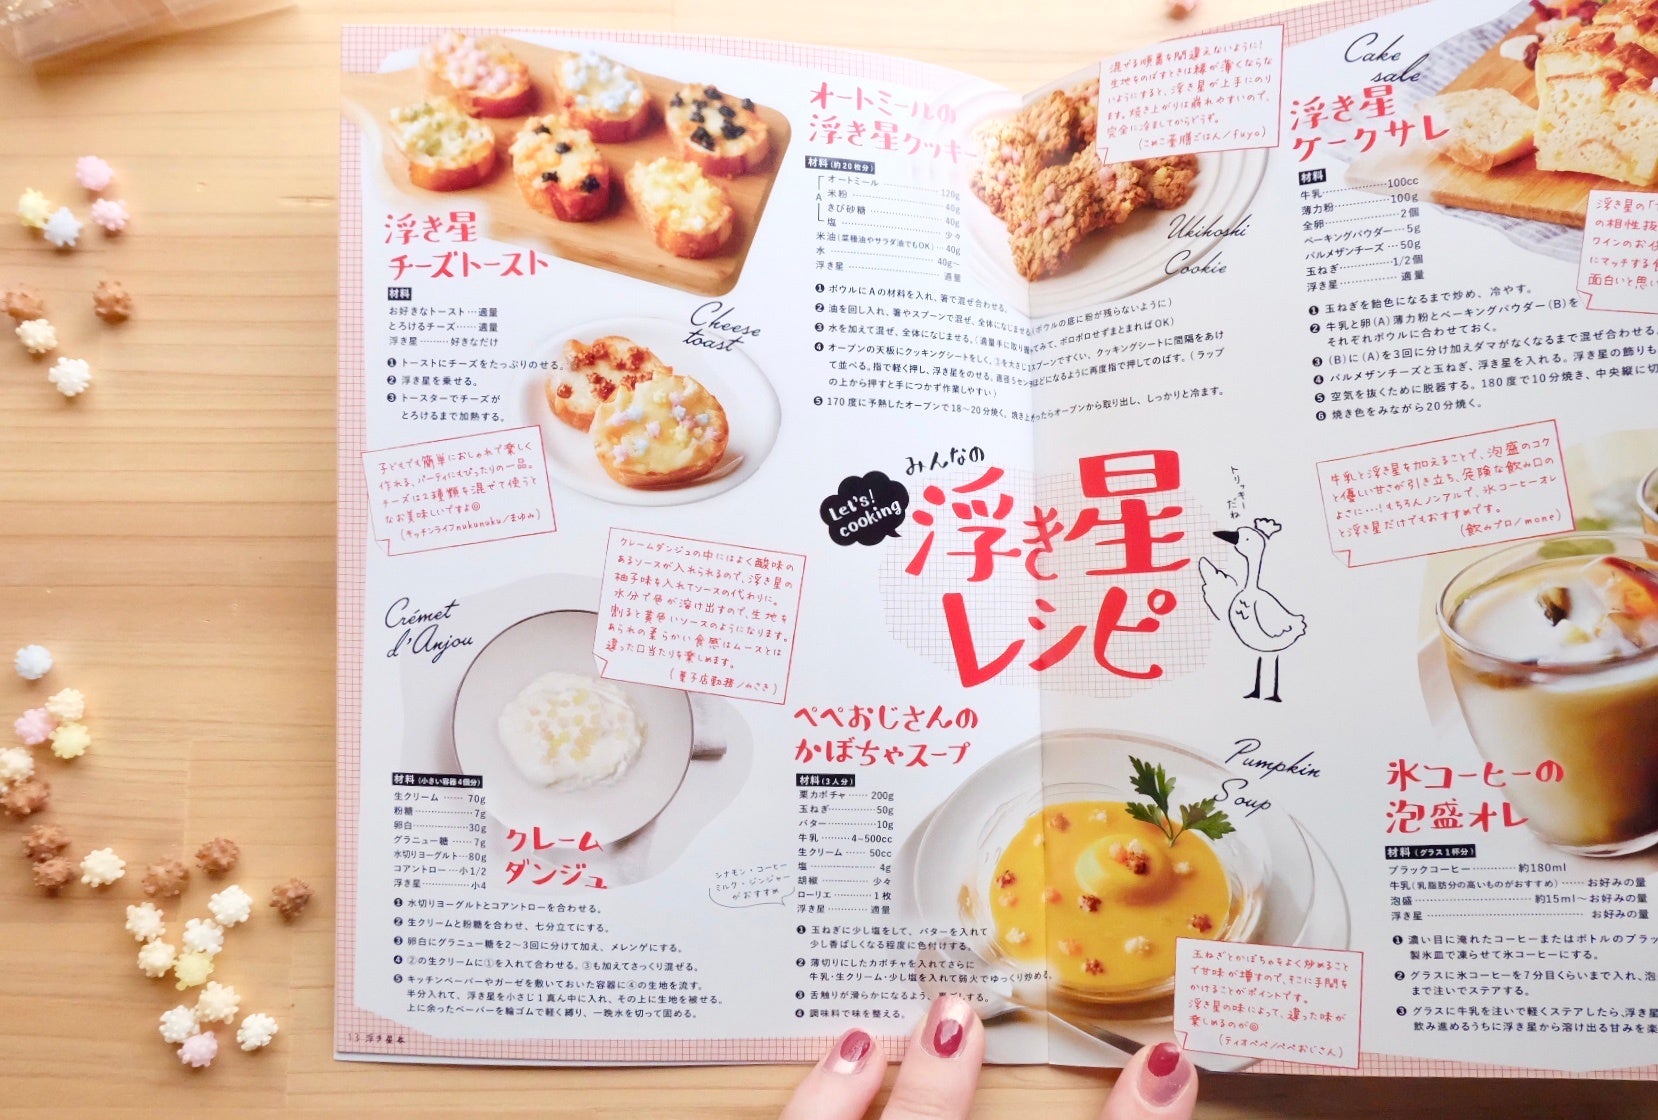 浮き星
チーズトースト
Cheese
toast
材料
お好きなトースト…適量
とろけるチーズ……適量
浮き星………好きなだけ
❶ トーストにチーズをたっぷりのせる。
❷ 浮き星を乗せる。
❸ トースターでチーズが
とろけるまで加熱する。
子どもでも簡単におしゃれで楽しく
作れる、パーティにもぴったりの一品。
チーズは2種類を混ぜて使うと
なお美味しいですよ◎
(キッチンライフnukunuku/まゆみ)
オートミールの
浮き星クッキー
Ukihoshi
Cookie
材料(約20枚分)
A
オートミール………120g
米粉………40g
きび砂糖………40g
塩………少々
米油(菜種油やサラダ油でもOK)…40g
水………40g~
浮き星………適量
❶ ボウルにAの材料を入れ、箸で混ぜ合わせる。
❷ 油を回し入れ、箸やスプーンで混ぜ、全体になじませる(ボウルの底に粉が残らないように)
❸ 水を加えて混ぜ、全体になじませる。(適量手に取り
てみて、ボロボロせずまとまればOK)
❹ オーブンの天板にクッキングシートをしく。
スプーンですくい、クッキングシートに間隔をあけ
て並べる。指で軽く押し、浮き星をのせる。直径5セン
ほどになるように再度指で押してのばす。(ラップ
の上から押すと手につかず作業しやすい)
❺ 170度に予熱したオーブンで18〜20分焼く。焼き上
ったらオーブンから取り出し、しっかりと冷ます。
混ぜる順番を間違えないように!
生地をのばすときは縁が薄くならな
いようにすると、浮き星が上手にのり
ます。焼き上がりは崩れやすいので、
完全に冷ましてからどうぞ。
(こめこ薬膳ごはん/fuyo)
Cake
sale
浮き星
ケークサレ
材料
牛乳………100cc
薄力粉………100g
全卵………2個
ベーキングパウダー…5g
パルメザンチーズ…50g
玉ねぎ………1/2個
浮き星………適量
❶ 玉ねぎを飴色になるまで炒め、冷やす。
❷ 牛乳と卵(A)薄力粉とベーキングパウダー(B)を
それぞれボウルに合わせておく。
❸ (B)に(A)を3回に分け加えダマがなくなるまで混ぜ合わせる。
❹ パルメザンチーズと玉ねぎ、浮き星を入れる。浮き星の飾りも
❺ 空気を抜くために脱器する。180度で10分焼き、中央縦に切
❻ 焼き色をみながら20分焼く。
浮き星の「
の相性抜
ワインのお
にマッチする
面白いと思い
Let's!
cooking
みんなの
浮き星
レシピ
トリッキー
だね
Crémet
d'Anjou
クレーム
ダンジュ
クレームダンジュの中にはよく酸味の
あるソースが入れられるので、浮き星の
柚子味を入れてソースの代わりに。
水分で色が溶け出すので、生地を
割ると黄色いソースのようになります。
あられの柔らかい食感はムースとは
違った口当たりを楽しめます。
(菓子店勤務/みさき)
材料(小さい容器4個分)
生クリーム……70g
粉糖………7g
卵白………30g
グラニュー糖……7g
水切りヨーグルト…80g
コアントロー…小1/2
浮き星………小4
❶ 水切りヨーグルトとコアントローを合わせる。
❷ 生クリームと粉糖を合わせ、七分立てにする。
❸ 卵白にグラニュー糖を2〜3回に分けて加え、メレンゲにする。
❹ ②の生クリームに①を入れて合わせる。③も加えてさっくり混ぜる。
❺ キッチンペーパーやガーゼを敷いておいた容器に④の生地を流す。
半分入れて、浮き星を小さじ1真ん中に入れ、その上に生地を被せる。
上に余ったペーパーを輪ゴムで軽く縛り、一晩水を切って固める。
13 浮き星本
ペペおじさんの
かぼちゃスープ
Pumpkin
Soup
材料(3人分)
栗カボチャ……200g
玉ねぎ………50g
バター………10g
牛乳………4~500cc
生クリーム……50cc
塩………4g
胡椒………少々
ローリエ………1枚
浮き星………適量
シナモン・コーヒー
ミルク・ジンジャー
がおすすめ
❶ 玉ねぎに少し塩をして、バターを入れて
少し香ばしくなる程度に色付けする。
❷ 薄切りにしたカボチャを入れてさらに
牛乳・生クリーム・少し塩を入れて弱火でゆっくり炒める。
❸ 舌触りが滑らかになるよう、裏ごしする。
❹ 調味料で味を整える。
玉ねぎとかぼちゃをよく炒めること
で甘味が増すので、そこに手間を
かけることがポイントです。
浮き星の味によって、違った味が
楽しめるのが◎
(ティオペペ/ペペおじさん)
牛乳と浮き星を加えることで、泡盛のコク
と優しい甘さが引き立ち、危険な飲み口の
よさに…!もちろんノンアルで、氷コーヒーオレ
と浮き星だけでもおすすめです。
(飲みプロ/mone)
氷コーヒーの
泡盛オレ
材料(グラス1杯分)
ブラックコーヒー………約180ml
牛乳(乳脂肪分の高いものがおすすめ)……お好みの量
泡盛………約15ml〜お好みの量
浮き星………お好みの量
❶ 濃い目に淹れたコーヒーまたはボトルのブラッ
製氷皿で凍らせて氷コーヒーにする。
❷ グラスに氷コーヒーを7分目くらいまで入れ、泡
まで注いでステアする。
❸ グラスに牛乳を注いで軽くステアしたら、浮き星
飲み進めるうちに浮き星から溶け出る甘みを楽